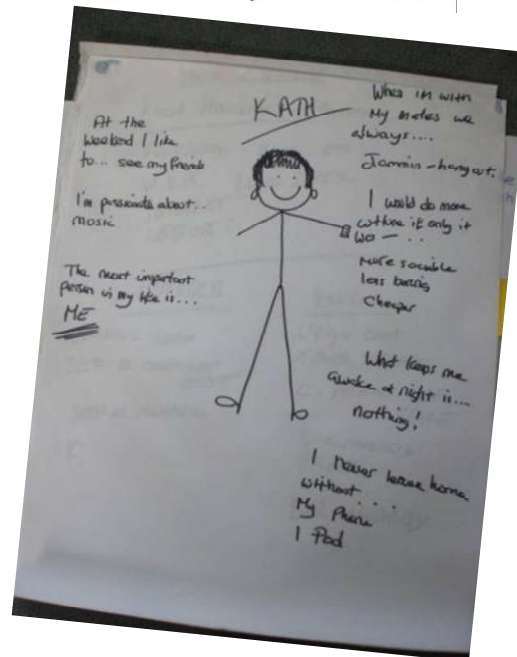 KATH
At the
Weekend I like
to... see my friends
I'm passionate about..
music
The most important
person in my life is...
ME
When im with
My mates we
always....
Jammin - hang out.
I would do more
culture if only it
was - ..
More sociable
less boring
Cheaper
What keeps me
awake at night is....
nothing!
I never leave home
without....
My Phone
I Pod